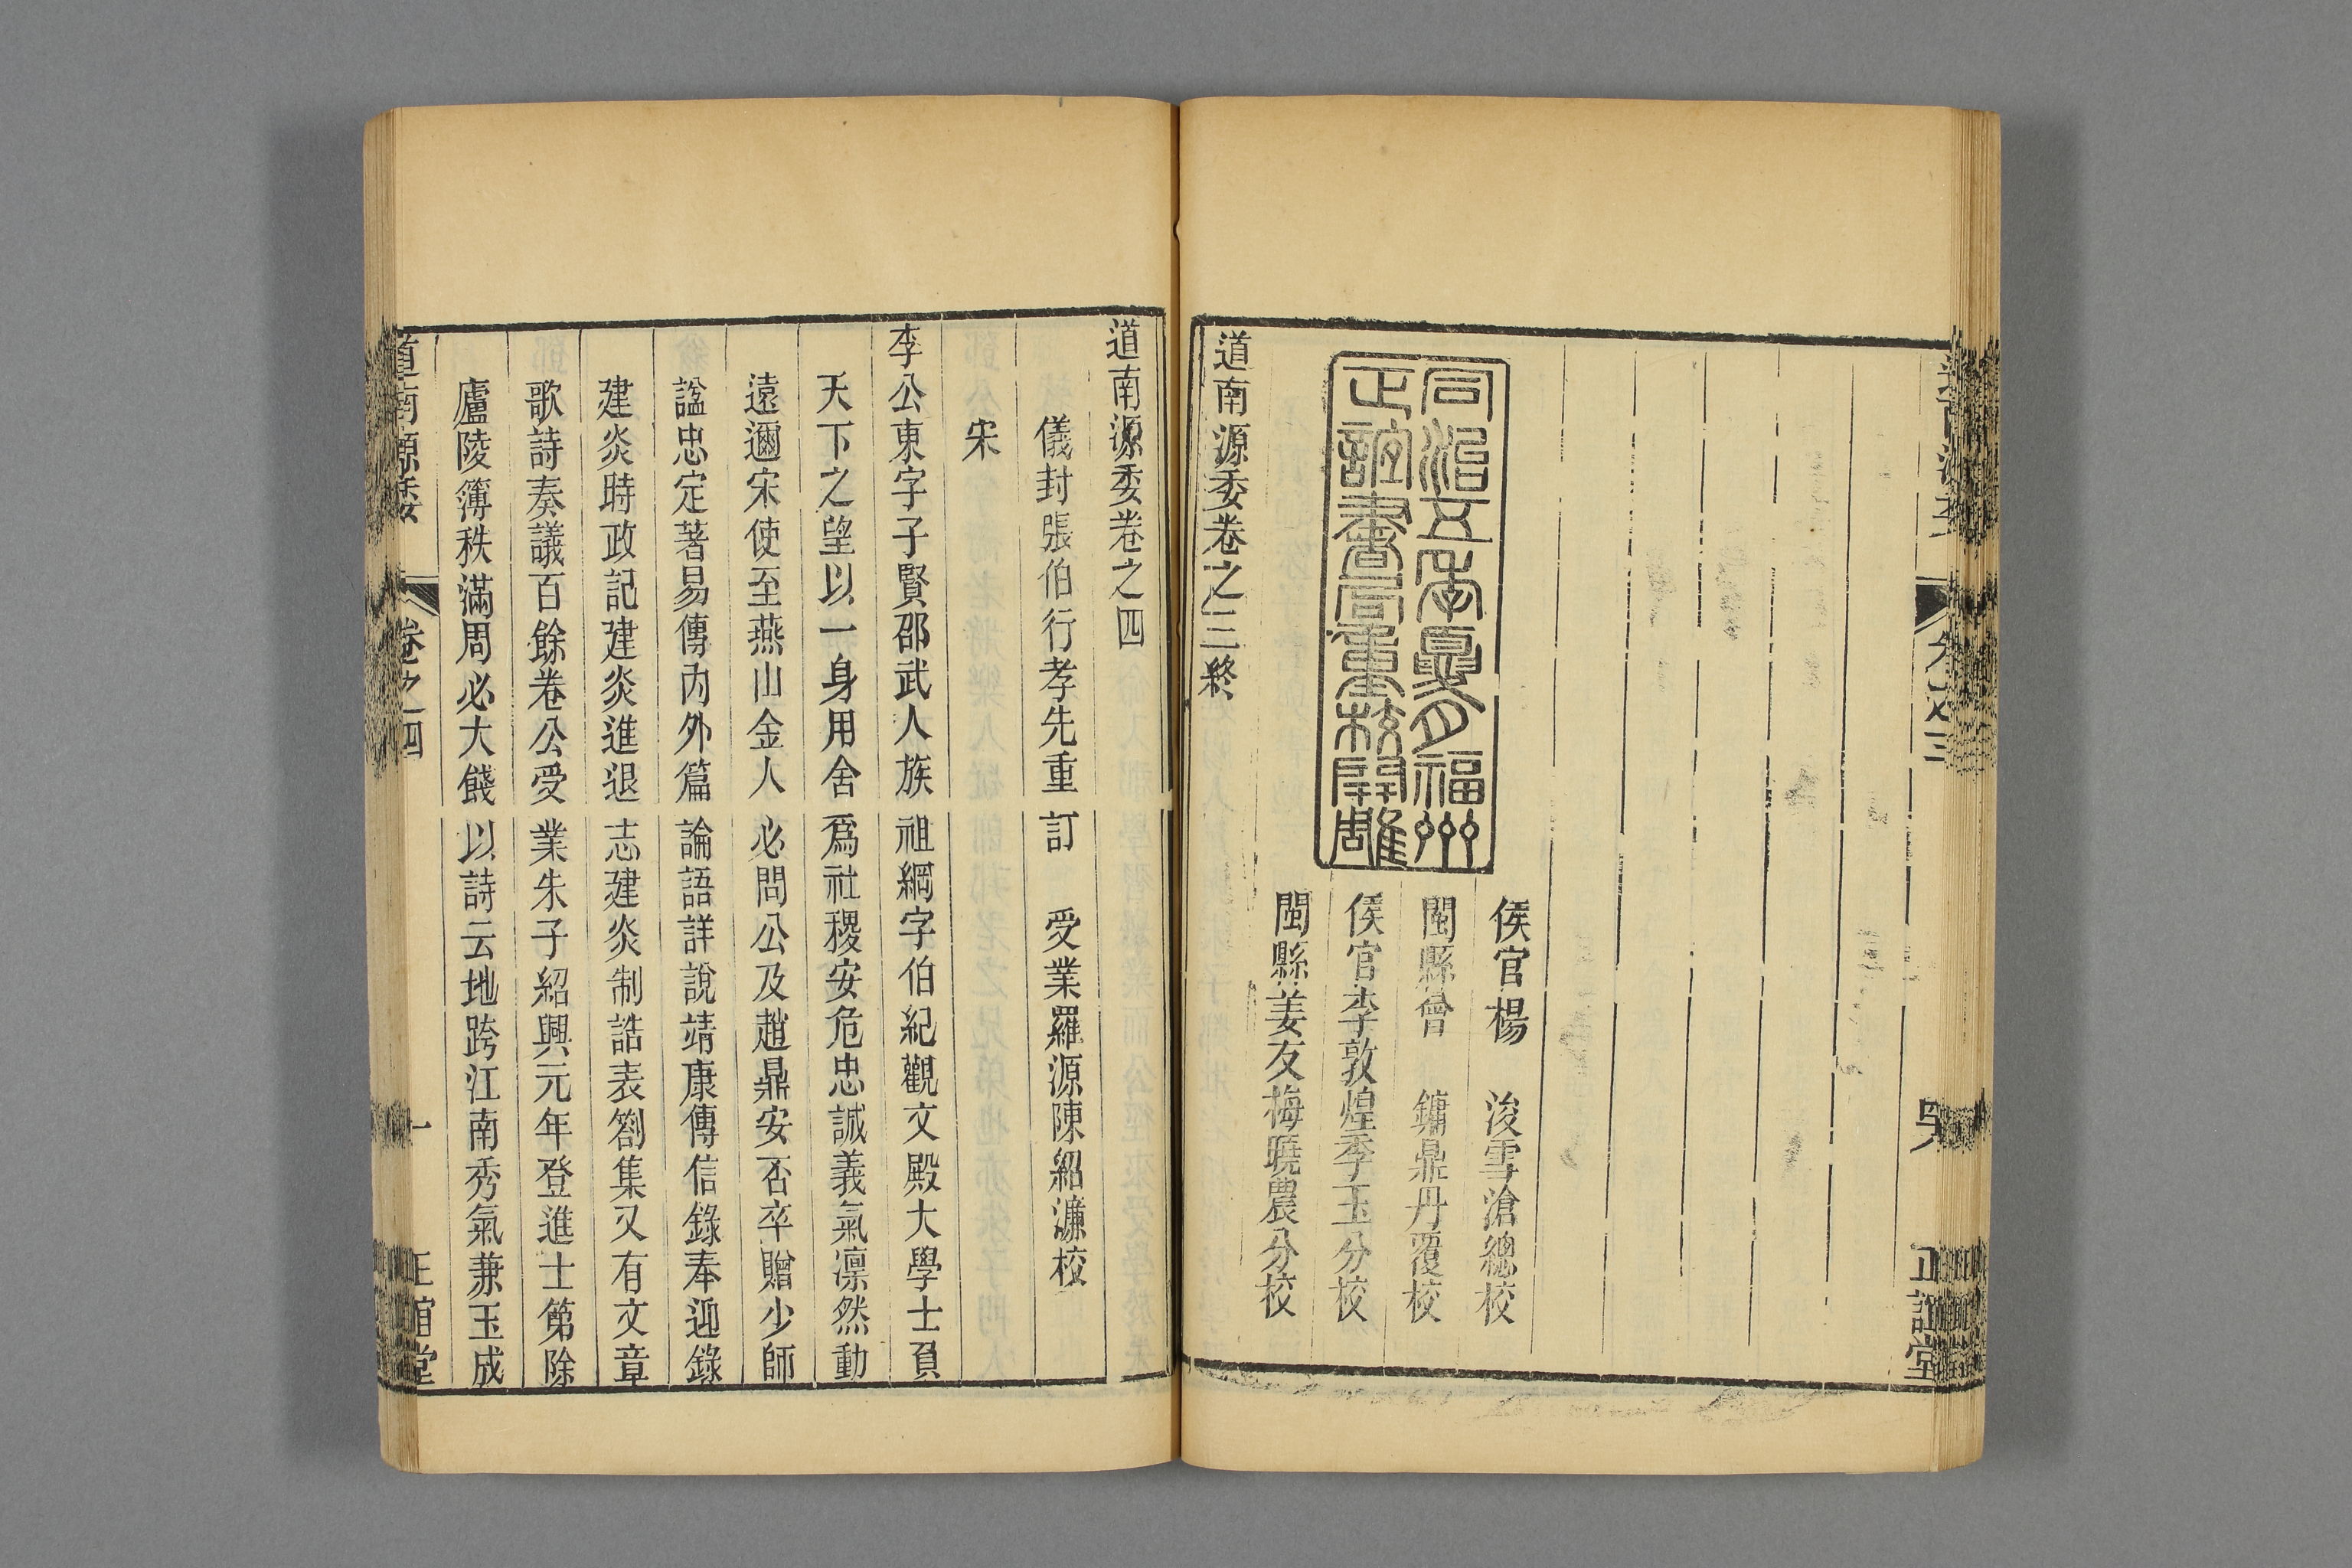 道南源委 卷之三 正誼堂
同治五年夏月福州
正誼書局重校開雕
侯官楊 浚雪滄總校
閩縣曾 鏞鼎丹覆校
侯官李敦煌季玉分校
閩縣姜友梅曉農分校
道南源委卷之三終
道南源委卷之四
儀封張伯行孝先重訂 受業羅源陳紹濂校
宋
李公東字子賢邵武人族祖綱字伯紀觀文殿大學士負
天下之望以一身用舍爲社稷安危忠誠義氣凛然動
遠邇宋使至燕山金人必問公及趙鼎安否卒贈少師
諡忠定著易傳內外篇論語詳說靖康傳信錄奉迎錄
建炎時政記建炎進退志建炎制誥表劄集又有文章
歌詩奏議百餘卷公受業朱子紹興元年登進士第除
廬陵簿秩滿周必大餞以詩云地跨江南秀氣兼玉成
道南源委 卷之四 一 正誼堂